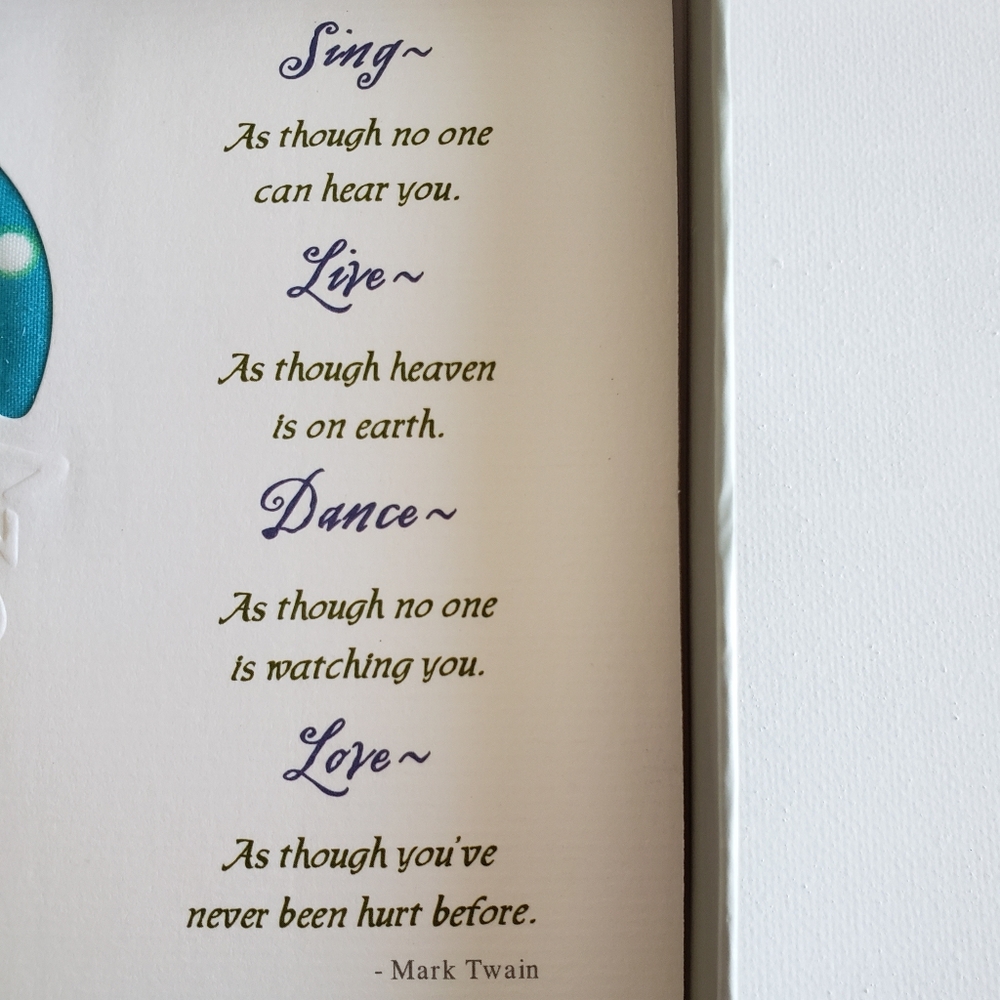 Sing~
As though no one
can hear you.
Live~
As though heaven
is on earth.
Dance~
As though no one
is watching you.
Love~
As though you've
never been hurt before.
- Mark Twain